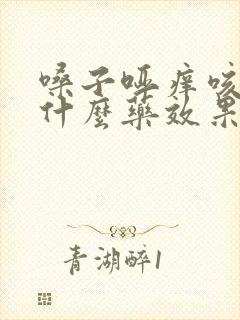 嗓子哑痒咳
什麼藥效果
青湖醉1